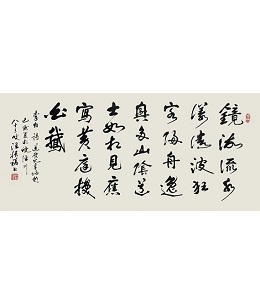 鏡湖流水
漾清波狂
客歸舟逸
興多山陰道
士如相見應
寫黄庭換
白鵝
李白詩